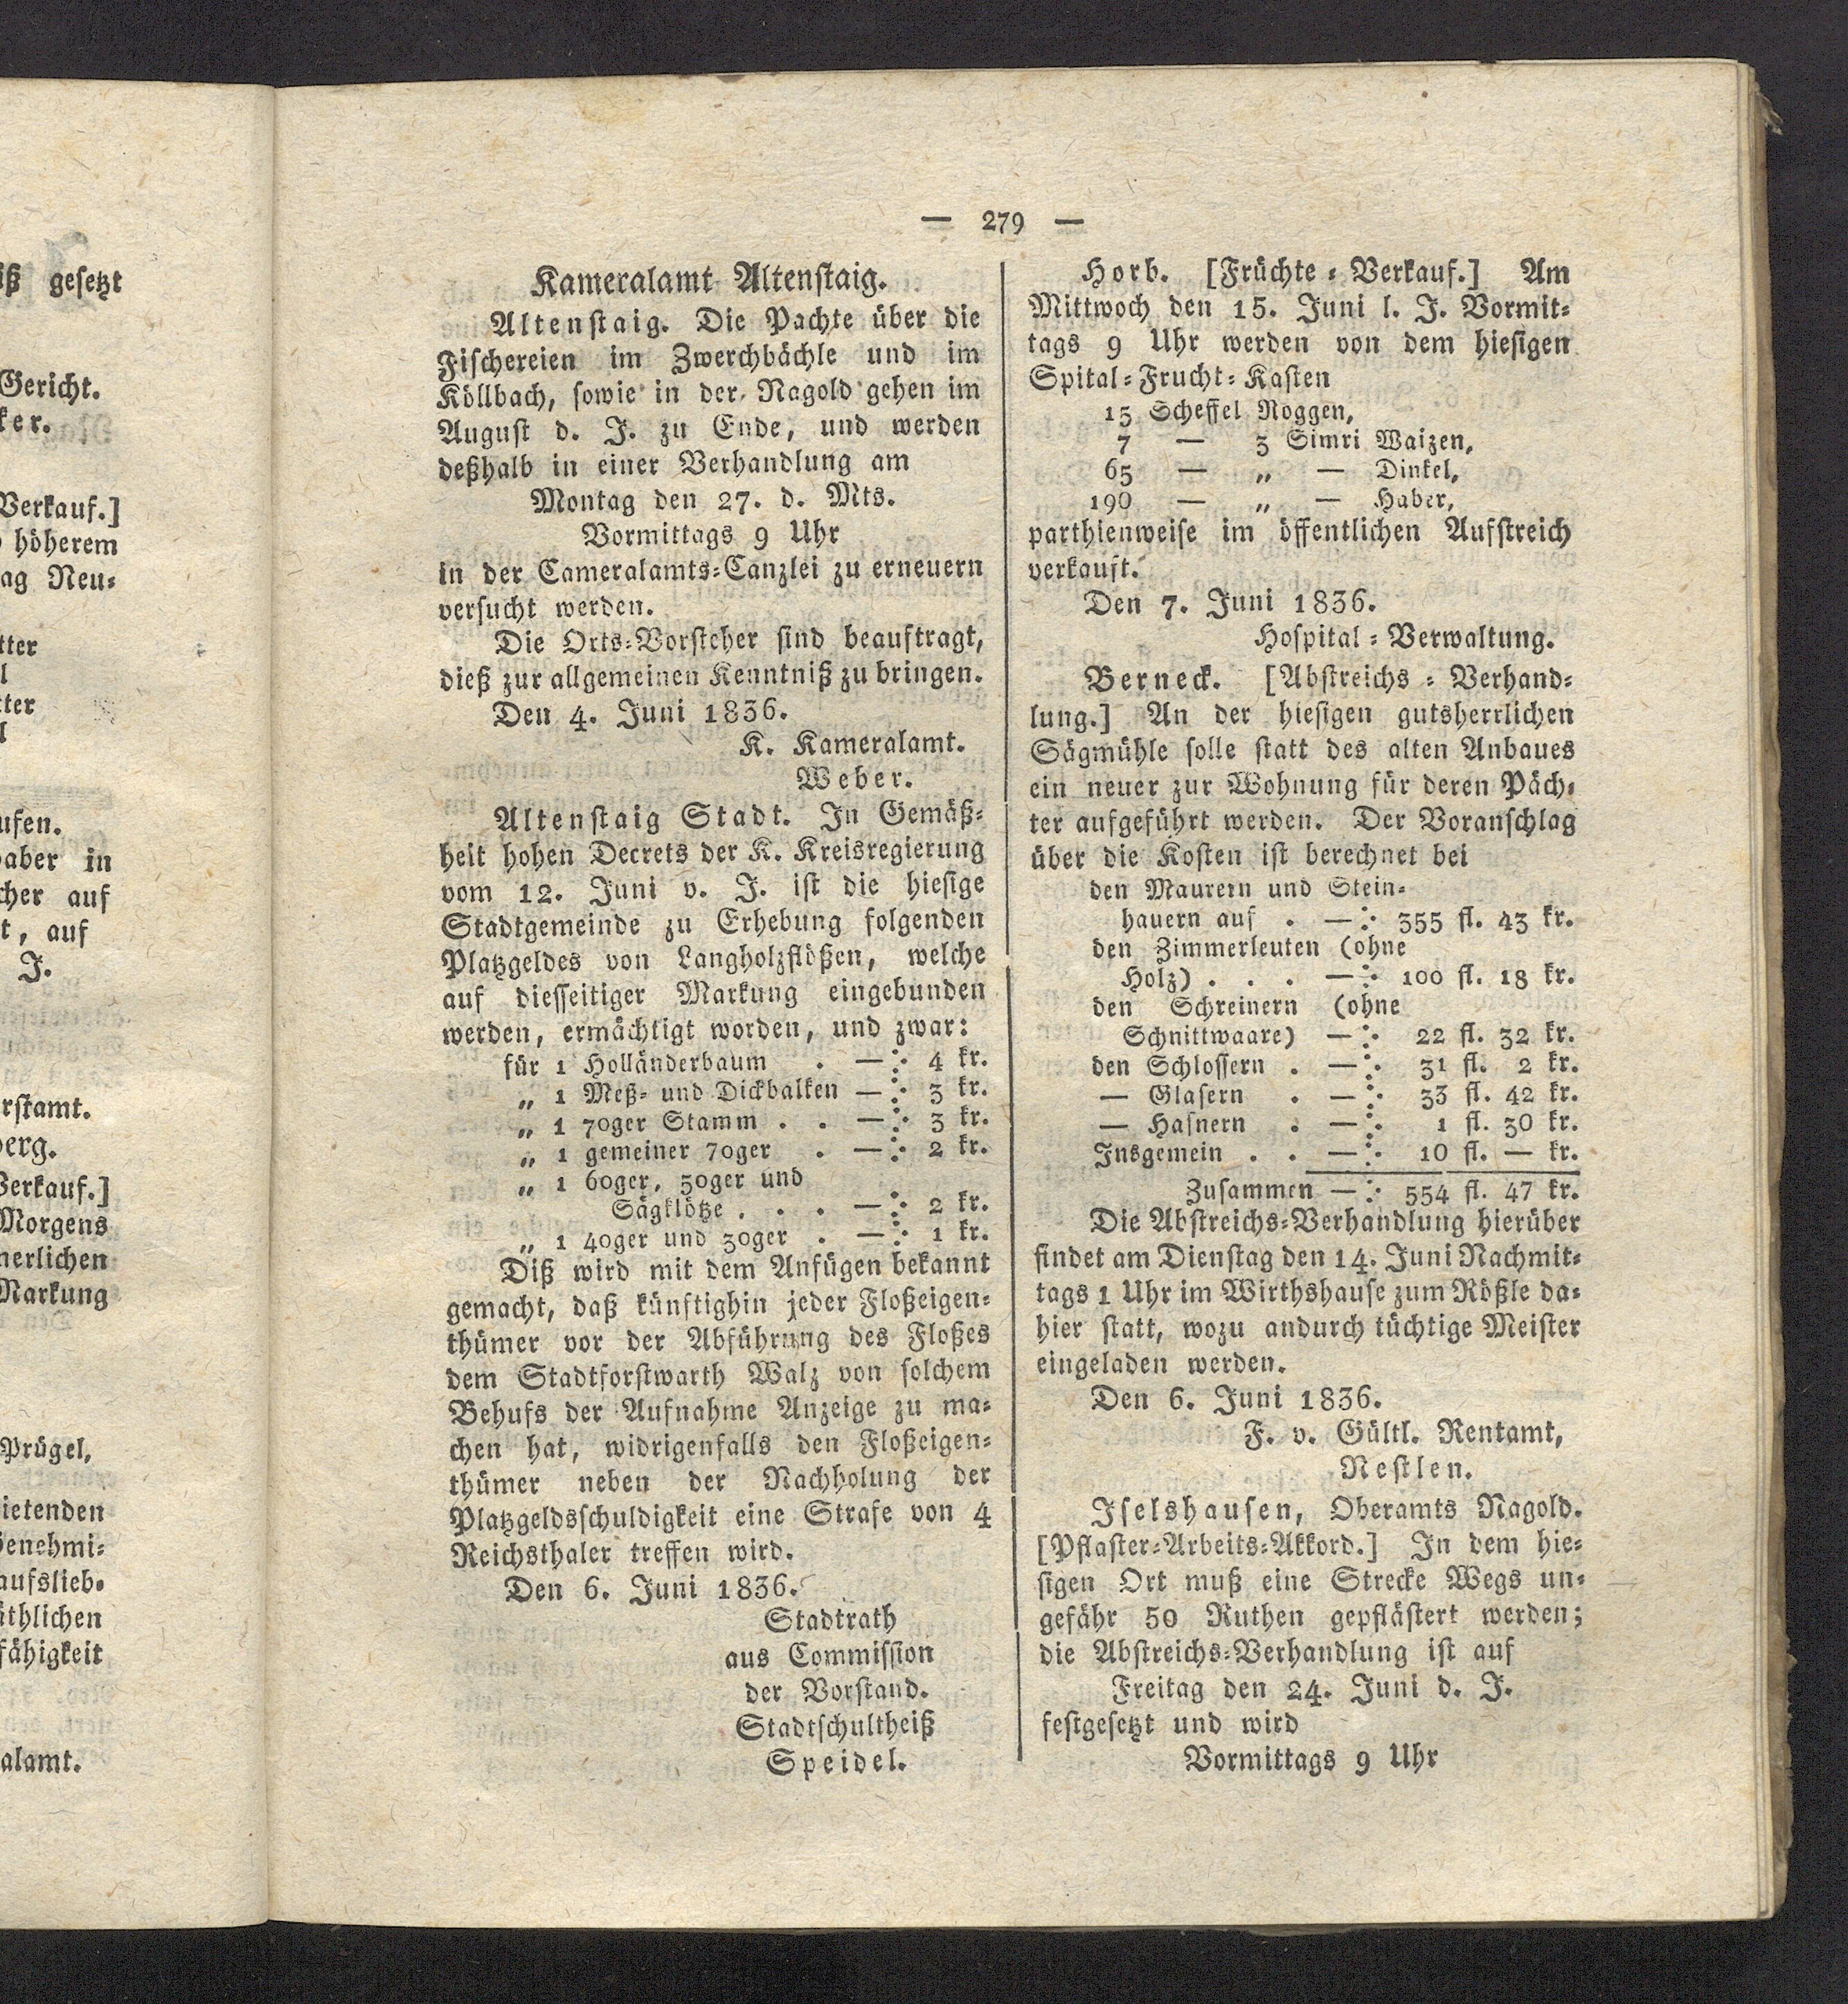 iß gesetzt
Gericht.
ker.
Verkauf.]
höherem
ag Neu⸗
tter
l
tter
l
ufen.
haber in
cher auf
t, auf
J.
rstamt.
berg.
Verkauf.]
Morgens
nerlichen
Markung
Prügel,
ietenden
Genehmi⸗
aufslieb⸗
äthlichen
fähigkeit
alamt.
— 279 —
Kameralamt Altenstaig.
Altenstaig. Die Pachte über die
Fischereien im Zwerchbächle und im
Köllbach, sowie in der Nagold gehen im
August d. J. zu Ende, und werden
deßhalb in einer Verhandlung am
Montag den 27. d. Mts.
Vormittags 9 Uhr
in der Cameralamts⸗Canzlei zu erneuern
versucht werden.
Die Orts⸗Vorsteher sind beauftragt,
dieß zur allgemeinen Kenntniß zu bringen.
Den 4. Juni 1836.
K. Kameralamt.
Weber.
Altenstaig Stadt. In Gemäß⸗
heit hohen Decrets der K. Kreisregierung
vom 12. Juni v. J. ist die hiesige
Stadtgemeinde zu Erhebung folgenden
Platzgeldes von Langholzflößen, welche
auf diesseitiger Markung eingebunden
werden, ermächtigt worden, und zwar:
für 1 Holländerbaum . —: 4 kr.
„ 1 Meß⸗ und Dickbalken —: 3 kr.
„ 1 70ger Stamm . . —: 3 kr.
„ 1 gemeiner 70ger . —: 2 kr.
„ 1 60ger, 50ger und
Sägklötze . . . —: 2 kr.
„ 1 40ger und 30ger . —: 1 kr.
Diß wird mit dem Anfügen bekannt
gemacht, daß künftighin jeder Floßeigen⸗
thümer vor der Abführung des Floßes
dem Stadtforstwarth Walz von solchem
Behufs der Aufnahme Anzeige zu ma⸗
chen hat, widrigenfalls den Floßeigen⸗
thümer neben der Nachholung der
Platzgeldsschuldigkeit eine Strafe von 4
Reichsthaler treffen wird.
Den 6. Juni 1836.
Stadtrath
aus Commission
der Vorstand.
Stadtschultheiß
Speidel.
Horb. [Früchte⸗Verkauf.] Am
Mittwoch den 15. Juni l. J. Vormit⸗
tags 9 Uhr werden von dem hiesigen
Spital⸗Frucht⸗Kasten
15 Scheffel Roggen,
7 — 3 Simri Waizen,
65 — „ — Dinkel,
190 — „ — Haber,
parthienweise im öffentlichen Aufstreich
verkauft.
Den 7. Juni 1836.
Hospital⸗Verwaltung.
Berneck. [Abstreichs⸗Verhand⸗
lung.] An der hiesigen gutsherrlichen
Sägmühle solle statt des alten Anbaues
ein neuer zur Wohnung für deren Päch⸗
ter aufgeführt werden. Der Voranschlag
über die Kosten ist berechnet bei
den Maurern und Stein⸗
hauern auf . —: 355 fl. 43 kr.
den Zimmerleuten (ohne
Holz) . . . —: 100 fl. 18 kr.
den Schreinern (ohne
Schnittwaare) —: 22 fl. 32 kr.
den Schlossern . —: 31 fl. 2 kr.
— Glasern . —: 33 fl. 42 kr.
— Hafnern . —: 1 fl. 30 kr.
Insgemein . . —: 10 fl. — kr.
Zusammen —: 554 fl. 47 kr.
Die Abstreichs⸗Verhandlung hierüber
findet am Dienstag den 14. Juni Nachmit⸗
tags 1 Uhr im Wirthshause zum Rößle da⸗
hier statt, wozu andurch tüchtige Meister
eingeladen werden.
Den 6. Juni 1836.
F. v. Gültl. Rentamt,
Nestlen.
Iselshausen, Oberamts Nagold.
[Pflaster⸗Arbeits⸗Akkord.] In dem hie⸗
sigen Ort muß eine Strecke Wegs un⸗
gefähr 50 Ruthen gepflästert werden;
die Abstreichs⸗Verhandlung ist auf
Freitag den 24. Juni d. J.
festgesetzt und wird
Vormittags 9 Uhr